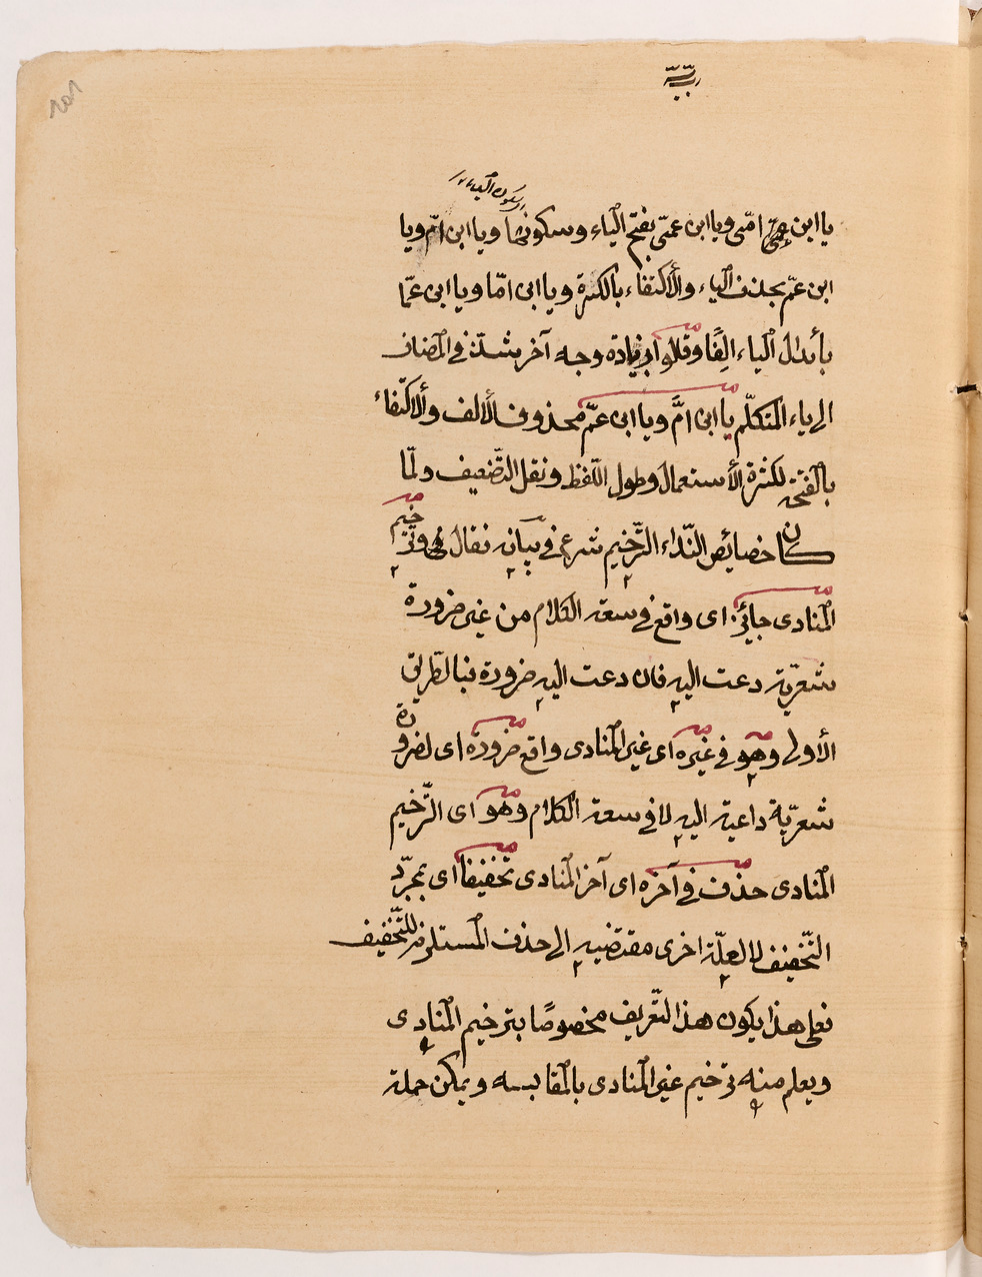 او سكون الياء
يا ابن امّى ويا ابن عمّى بفتح الياء وسكونها ويا ابن امّ ويا
ابن عمّ بحذف الياء والأكتفاء بالكسرة ويا ابن امّا ويا ابن عمّا
بأبدال الياء الِفًا وقالوا بزيادة وجه آخر شذّ في المضاف
الى ياء المتكلّم يا ابن امَّ ويا ابن عمّ محذوف الألف والأكتفاء
بالفتحة لكثرة الأستعمال وطول اللّفظ وثقل التّضعيف ولمّا
كان خصائص النّداء التّرخيم شرع في بيانه فقال وترخيم
المنادى جائز اى واقع في سعة الكلام من غير ضرورة
شعريّة دعت اليه فان دعت اليه ضرورة فبالطّريق
الأولى وهو في غيره اى غير المنادى واقع ضرورة اى لضرورة
شعريّة داعية اليه لا في سعة الكلام وهو اى التّرخيم
المنادى حذف في آخره اى آخر المنادى تخفيفًا اى بمجرّد
التّخفيف لا لعلّة اخرى مقتضيه الى حذف المستلزم للتّخفيف
فعلى هذا يكون هذا التّعريف مخصوصًا بترخيم المنادى
ويعلم منه ترخيم غير المنادى بالمقايسه ويمكن حمله